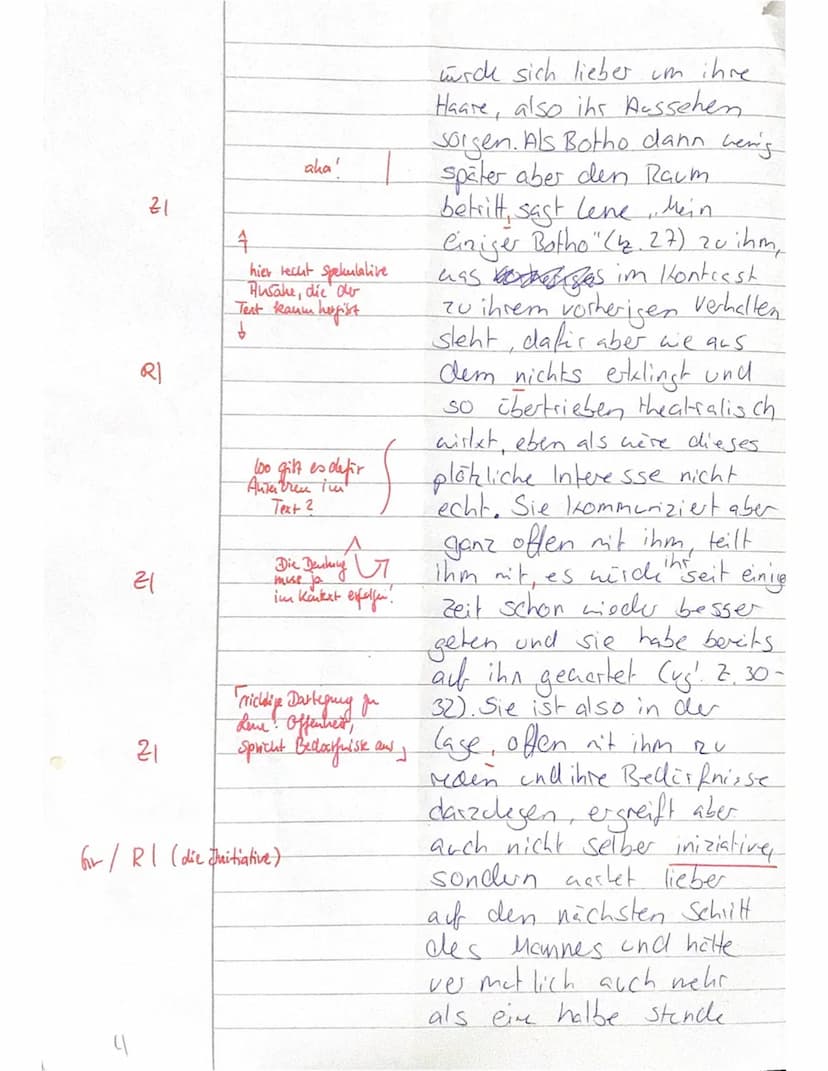 würde sich lieber um ihre
Haare, also ihr Aussehen
sorgen. Als Botho dann wenig
aha!
später aber den Raum
Z|
betritt, sagt Lene „Mein
einziger Botho" (Z. 27) zu ihm,
hier recht spekulative
Ansätze, die der
Text kaum hergibt
was im Kontrast
zu ihrem vorherigen Verhalten
steht, dafür aber wie aus
R|
dem nichts erklingt und
so übertrieben theatralisch
wirkt, eben als wäre dieses
wo gibt es dafür
Anzeichen im
Text?
plötzliche Interesse nicht
echt. Sie kommuniziert aber
ganz offen mit ihm, teilt
Die Deutung
muss ja
im Kontext erfolgen!
Z|
ihm mit, es würde ihr seit einige
Zeit schon wieder besser
gehen und sie habe bereits
auf ihn gewartet (vgl. Z. 30-
richtige Darlegung zu
Lene: Offenheit,
spricht Bedürfnisse aus
32). Sie ist also in der
Z|
Lage, offen mit ihm zu
reden und ihre Bedürfnisse
darzulegen, ergreift aber
Gr / R| (die Initiative)
auch nicht selber iniziative,
sondern wartet lieber
auf den nächsten Schritt
des Mannes und hätte
vermutlich auch mehr
als eine halbe Stunde
4